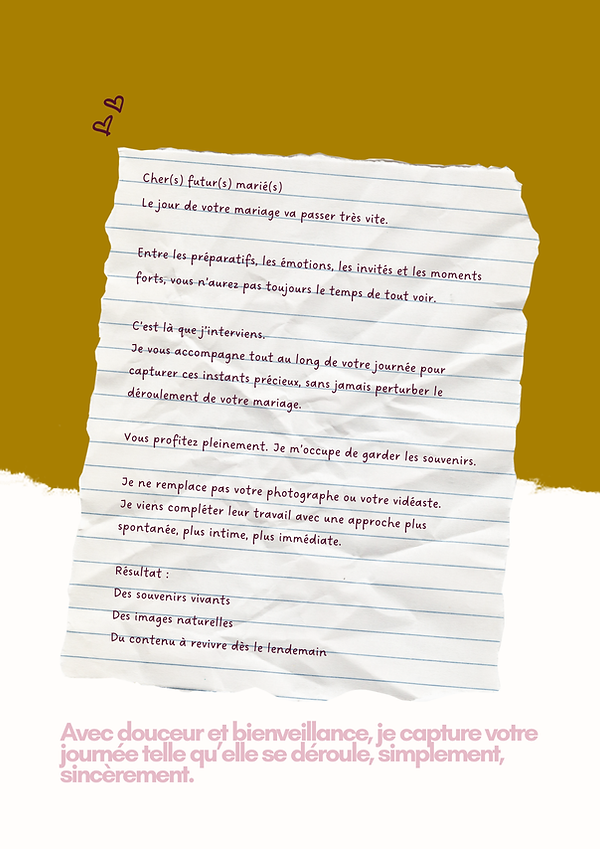 Cher(s) futur(s) marié(s)
Le jour de votre mariage va passer très vite.
Entre les préparatifs, les émotions, les invités et les moments
forts, vous n'aurez pas toujours le temps de tout voir.
C'est là que j'interviens.
Je vous accompagne tout au long de votre journée pour
capturer ces instants précieux, sans jamais perturber le
déroulement de votre mariage.
Vous profitez pleinement. Je m'occupe de garder les souvenirs.
Je ne remplace pas votre photographe ou votre vidéaste.
Je viens compléter leur travail avec une approche plus
spontanée, plus intime, plus immédiate.
Résultat :
Des souvenirs vivants
Des images naturelles
Du contenu à revivre dès le lendemain
Avec douceur et bienveillance, je capture votre
journée telle qu'elle se déroule, simplement,
sincèrement.